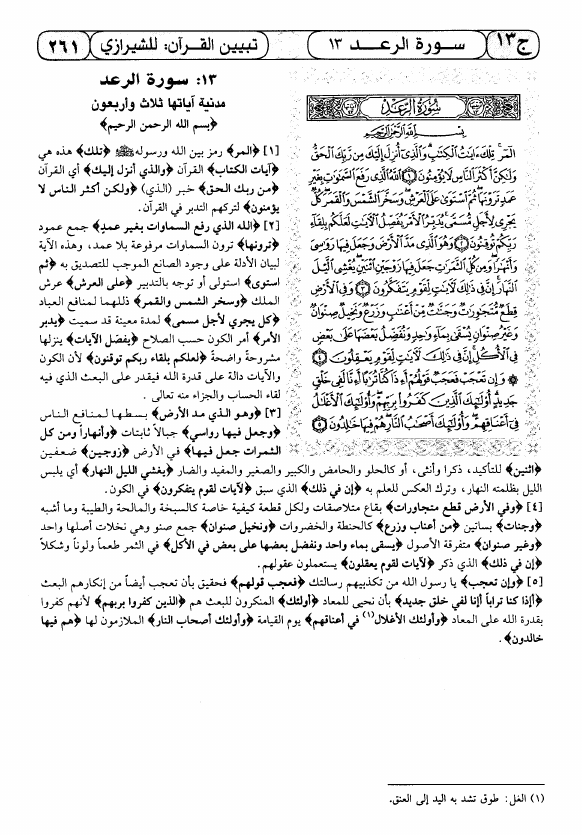 ج١٣
سورة الرعد ١٣
تبيين القرآن: للشيرازي
٢٦١
سُورَةُ الرَّعْدِ
بِسْمِ اللَّهِ الرَّحْمَٰنِ الرَّحِيمِ
الٓمٓر ۚ تِلْكَ ءَايَٰتُ الْكِتَٰبِ ۗ وَالَّذِىٓ أُنزِلَ إِلَيْكَ مِن رَّبِّكَ الْحَقُّ
وَلَٰكِنَّ أَكْثَرَ النَّاسِ لَا يُؤْمِنُونَ ١ اللَّهُ الَّذِى رَفَعَ السَّمَٰوَٰتِ بِغَيْرِ
عَمَدٍ تَرَوْنَهَا ۖ ثُمَّ اسْتَوَىٰ عَلَى الْعَرْشِ ۖ وَسَخَّرَ الشَّمْسَ وَالْقَمَرَ ۖ كُلٌّ
يَجْرِى لِأَجَلٍ مُّسَمًّى ۚ يُدَبِّرُ الْأَمْرَ يُفَصِّلُ الْءَايَٰتِ لَعَلَّكُم بِلِقَآءِ
رَبِّكُمْ تُوقِنُونَ ٢ وَهُوَ الَّذِى مَدَّ الْأَرْضَ وَجَعَلَ فِيهَا رَوَٰسِىَ
وَأَنْهَٰرًا ۖ وَمِن كُلِّ الثَّمَرَٰتِ جَعَلَ فِيهَا زَوْجَيْنِ اثْنَيْنِ ۖ يُغْشِى الَّيْلَ
النَّهَارَ ۚ إِنَّ فِى ذَٰلِكَ لَءَايَٰتٍ لِّقَوْمٍ يَتَفَكَّرُونَ ٣ وَفِى الْأَرْضِ
قِطَعٌ مُّتَجَٰوِرَٰتٌ وَجَنَّٰتٌ مِّنْ أَعْنَٰبٍ وَزَرْعٌ وَنَخِيلٌ صِنْوَانٌ
وَغَيْرُ صِنْوَانٍ يُسْقَىٰ بِمَآءٍ وَٰحِدٍ وَنُفَضِّلُ بَعْضَهَا عَلَىٰ بَعْضٍ
فِى الْأُكُلِ ۚ إِنَّ فِى ذَٰلِكَ لَءَايَٰتٍ لِّقَوْمٍ يَعْقِلُونَ ٤
۞ وَإِن تَعْجَبْ فَعَجَبٌ قَوْلُهُمْ أَءِذَا كُنَّا تُرَٰبًا أَءِنَّا لَفِى خَلْقٍ
جَدِيدٍ ۗ أُو۟لَٰٓئِكَ الَّذِينَ كَفَرُوا۟ بِرَبِّهِمْ ۖ وَأُو۟لَٰٓئِكَ الْأَغْلَٰلُ
فِىٓ أَعْنَاقِهِمْ ۖ وَأُو۟لَٰٓئِكَ أَصْحَٰبُ النَّارِ ۖ هُمْ فِيهَا خَٰلِدُونَ ٥
١٣: سورة الرعد
مدنية آياتها ثلاث وأربعون
﴿بسم الله الرحمن الرحيم﴾
[١] ﴿المر﴾ رمز بين الله ورسوله ﷺ ﴿تلك﴾ هذه هي
﴿آيات الكتاب﴾ القرآن ﴿والذي أنزل إليك﴾ أي القرآن
﴿من ربك الحق﴾ خبر (الذي) ﴿ولكن أكثر الناس لا
يؤمنون﴾ لتركهم التدبر في القرآن.
[٢] ﴿الله الذي رفع السماوات بغير عمد﴾ جمع عمود
﴿ترونها﴾ ترون السماوات مرفوعة بلا عمد، وهذه الآية
لبيان الأدلة على وجود الصانع الموجب للتصديق به ﴿ثم
استوى﴾ استولى أو توجه بالتدبير ﴿على العرش﴾ عرش
الملك ﴿وسخر الشمس والقمر﴾ ذللهما لمنافع العباد
﴿كل يجري لأجل مسمى﴾ لمدة معينة قد سميت ﴿يدبر
الأمر﴾ أمر الكون حسب الصلاح ﴿يفصل الآيات﴾ ينزلها
مشروحة واضحة ﴿لعلكم بلقاء ربكم توقنون﴾ لأن الكون
والآيات دالة على قدرة الله فيقدر على البعث الذي فيه
لقاء الحساب والجزاء منه تعالى.
[٣] ﴿وهو الذي مد الأرض﴾ بسطها لمنافع الناس
﴿وجعل فيها رواسي﴾ جبالاً ثابتات ﴿وأنهاراً ومن كل
الثمرات جعل فيها﴾ في الأرض ﴿زوجين﴾ ضعفين
﴿اثنين﴾ للتأكيد، ذكرا وأنثى، أو كالحلو والحامض والكبير والصغير والمفيد والضار ﴿يغشي الليل النهار﴾ أي يلبس
الليل بظلمته النهار، وترك العكس للعلم به ﴿إن في ذلك﴾ الذي سبق ﴿لآيات لقوم يتفكرون﴾ في الكون.
[٤] ﴿وفي الأرض قطع متجاورات﴾ بقاع متلاصقات ولكل قطعة كيفية خاصة كالسبخة والمالحة والطيبة وما أشبه
﴿وجنات﴾ بساتين ﴿من أعناب وزرع﴾ كالحنطة والخضروات ﴿ونخيل صنوان﴾ جمع صنو وهي نخلات أصلها واحد
﴿وغير صنوان﴾ متفرقة الأصول ﴿يسقى بماء واحد ونفضل بعضها على بعض في الأكل﴾ في الثمر طعماً ولوناً وشكلاً
﴿إن في ذلك﴾ الذي ذكر ﴿لآيات لقوم يعقلون﴾ يستعملون عقولهم.
[٥] ﴿وإن تعجب﴾ يا رسول الله من تكذيبهم رسالتك ﴿فعجب قولهم﴾ فحقيق بأن تعجب أيضاً من إنكارهم البعث
﴿أإذا كنا تراباً أإنا لفي خلق جديد﴾ بأن نحيى للمعاد ﴿أولئك﴾ المنكرون للبعث هم ﴿الذين كفروا بربهم﴾ لأنهم كفروا
بقدرة الله على المعاد ﴿وأولئك الأغلال(١) في أعناقهم﴾ يوم القيامة ﴿وأولئك أصحاب النار﴾ الملازمون لها ﴿هم فيها
خالدون﴾.
(١) الغل: طوق تشد به اليد إلى العنق.